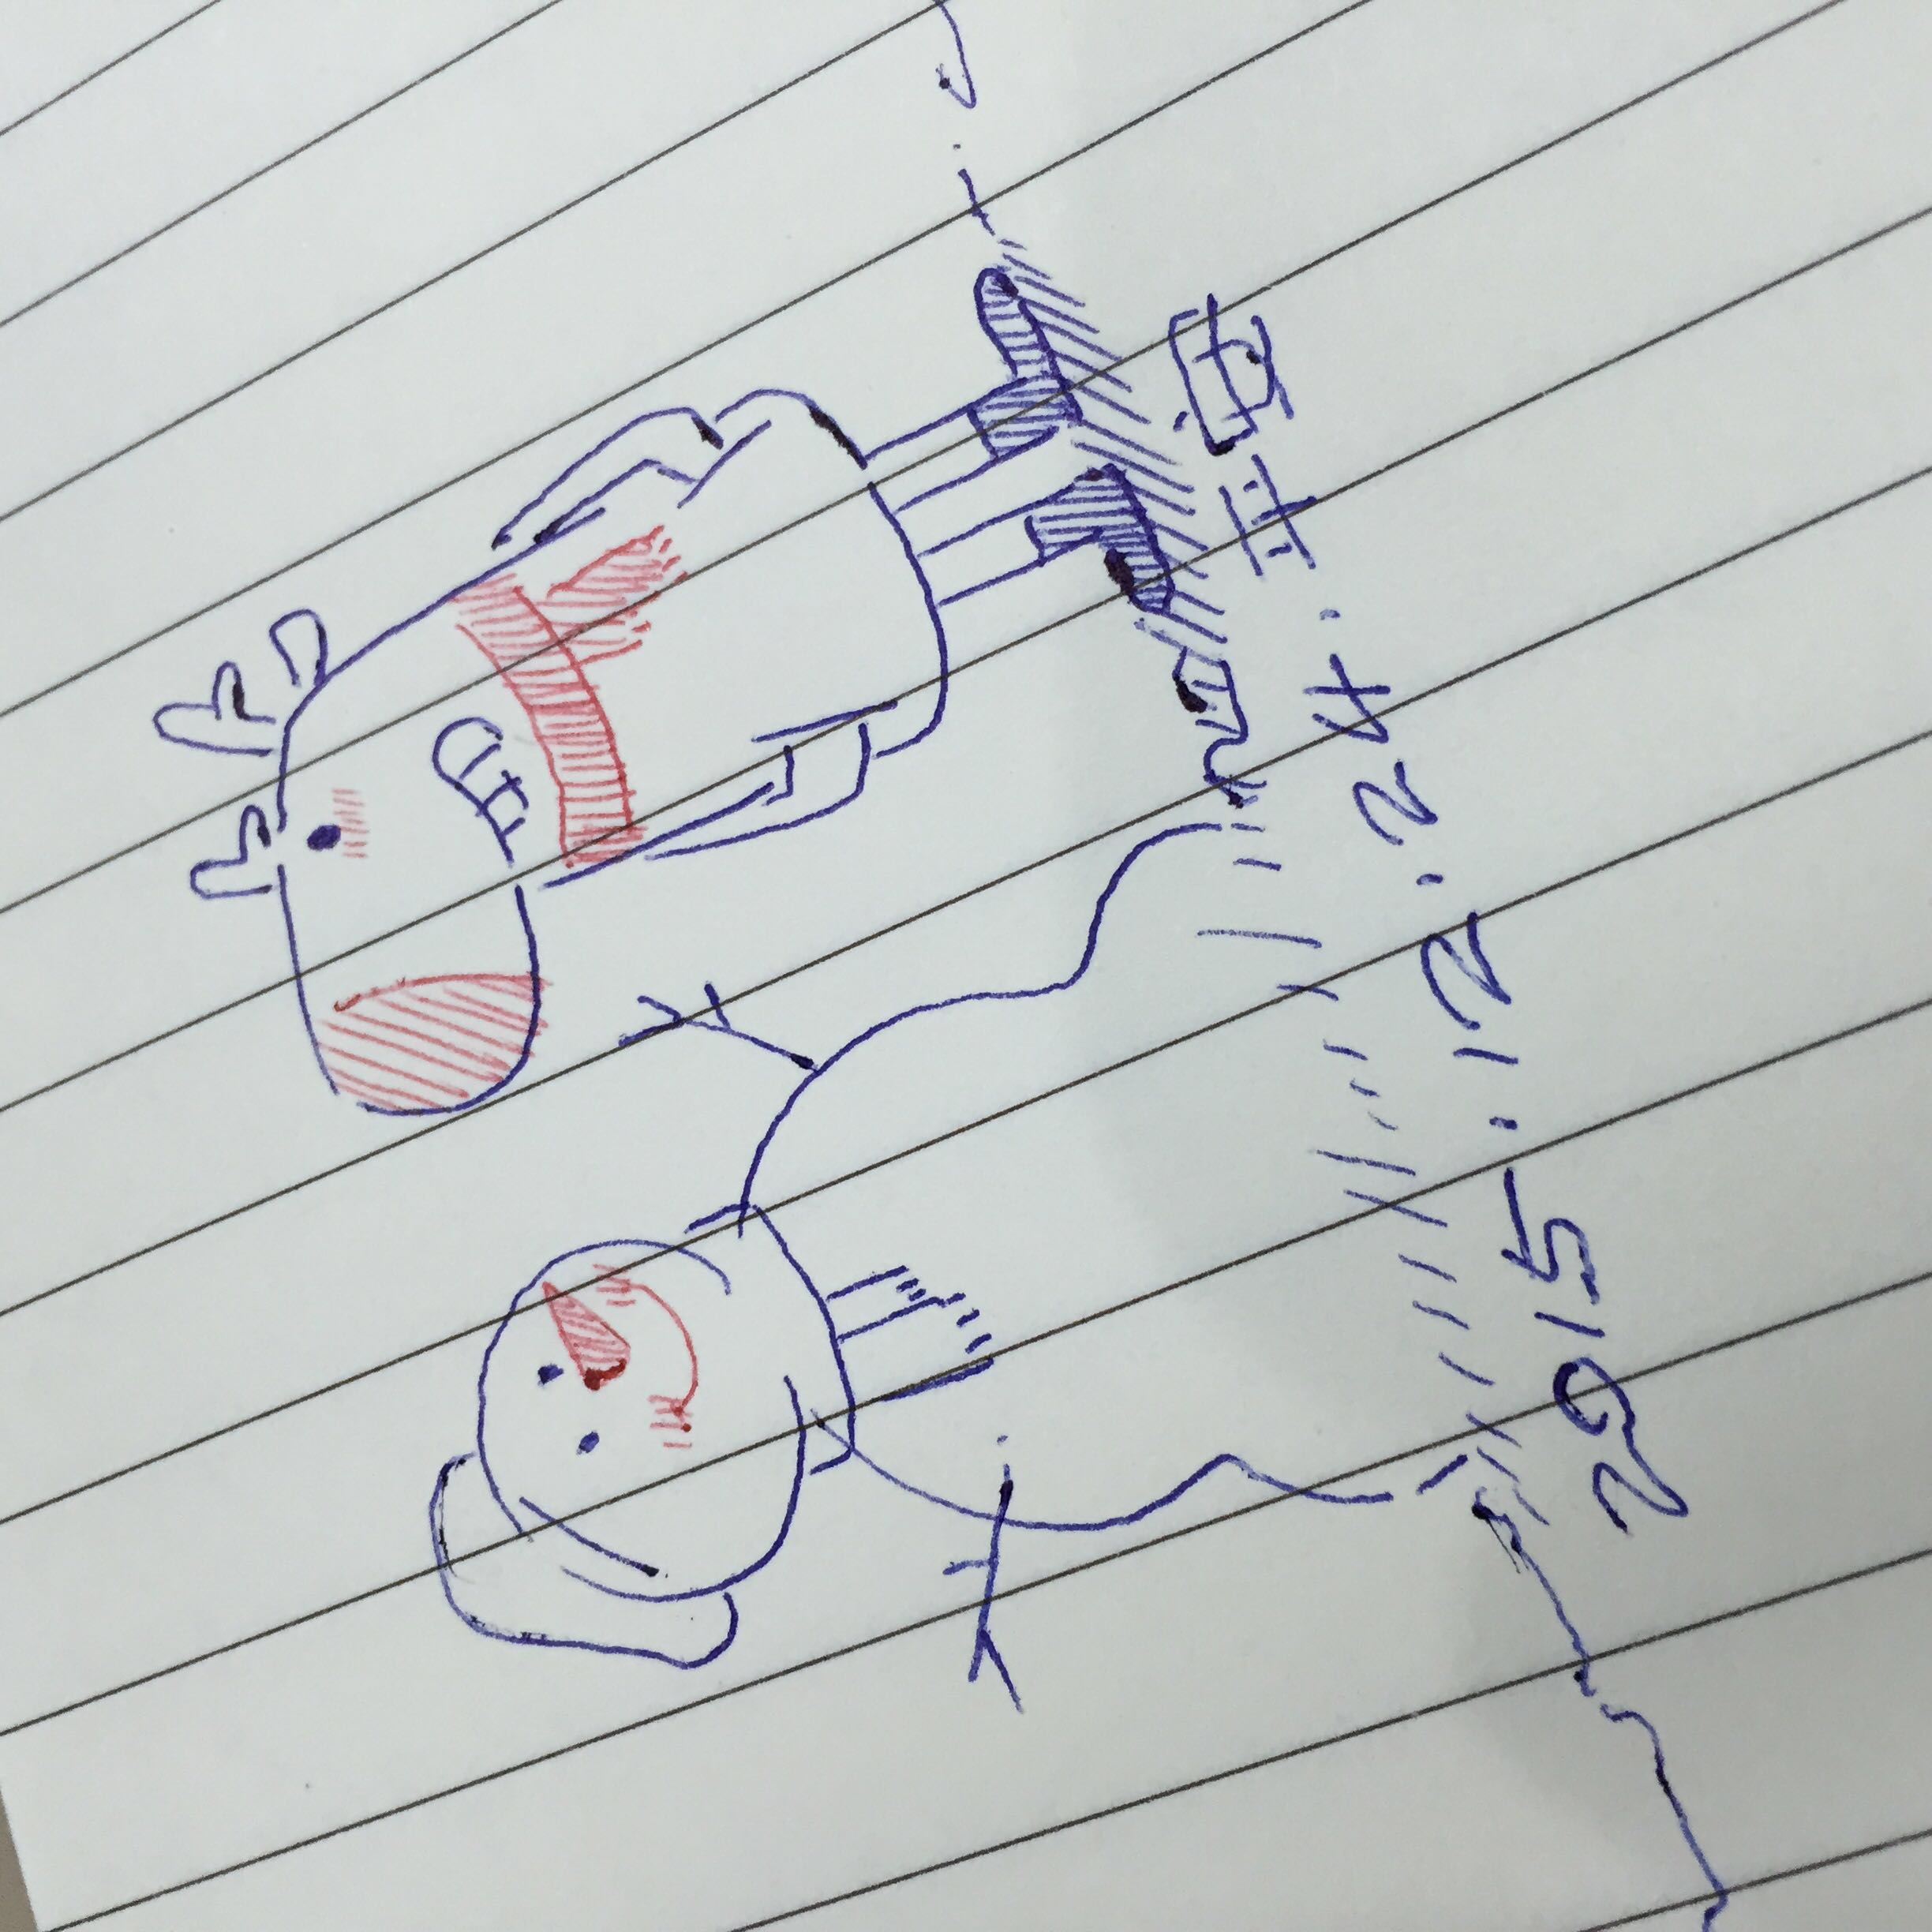 2015.12.24.平安